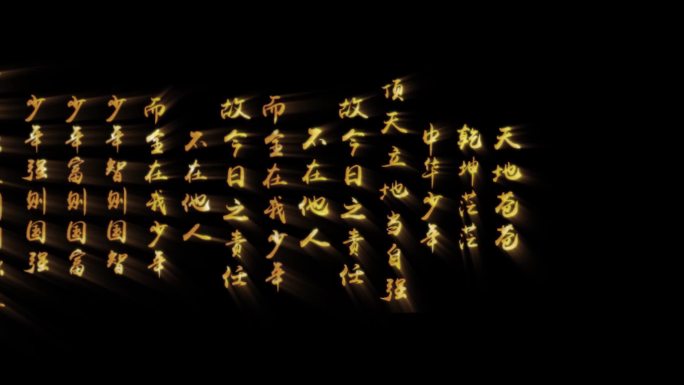 天地苍苍
乾坤茫茫
中华少年
顶天立地当自强
故今日之责任
不在他人
而全在我少年
故今日之责任
不在他人
而全在我少年
少年智则国智
少年富则国富
少年强则国强